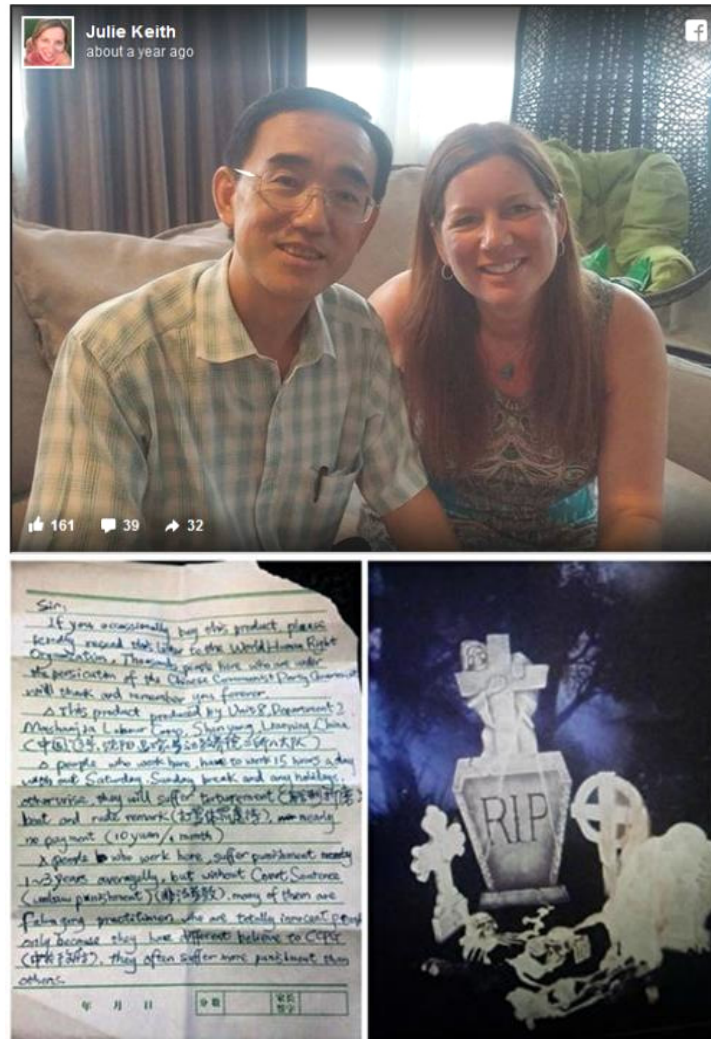 Julie Keith
about a year ago
161 39 32
Sir,
If you occassionally buy this product, please
kindly resend this letter to the World Human Right
Organization. Thousands people here who are under
the persicution of the Chinese Communist Party Government
will thank and remember you forever.
△ This product produced by Unit 8, Department 2,
Mashanjia Labour Camp, Shenyang, Liaoning, China
(中国, 辽宁, 沈阳, 马三家劳动教养院二所八大队)
△ people who work here, have to work 15 hours a day
with out Saturday, Sunday break and any holidays,
otherwise, they will suffer torturement
beat and rude remark (打骂体罚虐待), nearly
no payment (10 yuan/1 month)
△ people who work here, suffer punishment nearly
1~3 years averagelly, but without Court Sentence
(unlaw punishment) (非法劳教), many of them are
Falungong practitioner, who are totally innocent people
only because they have different believe to CCPG
they often suffer more punishment than
others.
年 月 日
分数
家长
签字
RIP